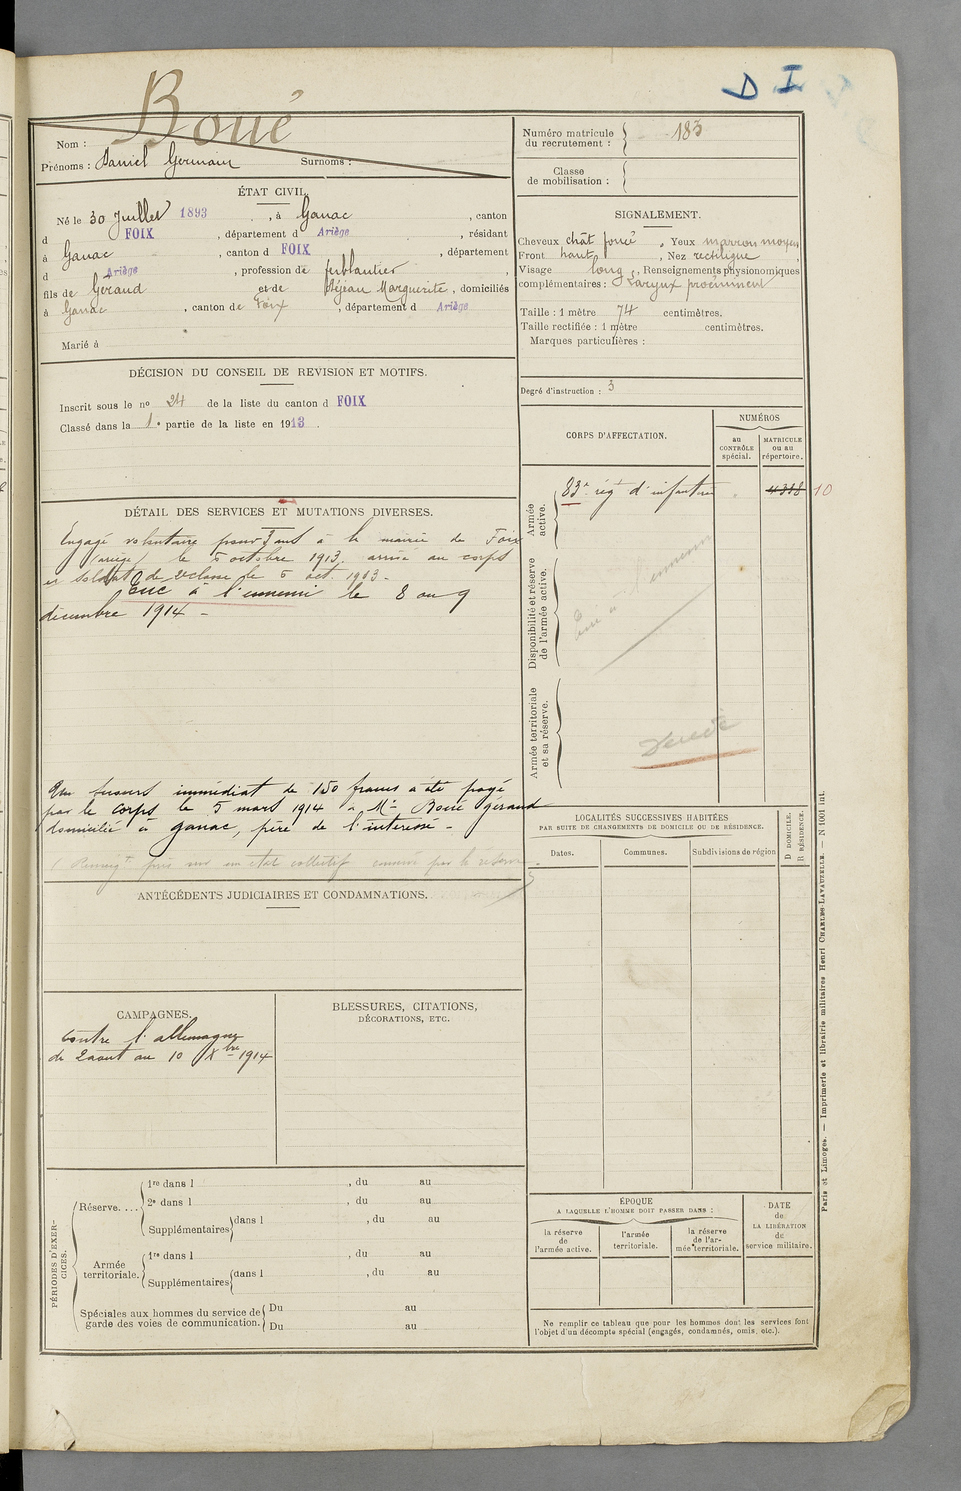 D I
Boué
Nom :
Prénoms : Daniel Germain Surnoms :
Numéro matricule du recrutement : 183
Classe de mobilisation :
ÉTAT CIVIL.
Né le 30 Juillet 1893, à Ganac, canton
d FOIX, département d Ariège, résidant
à Ganac, canton d FOIX, département
d Ariège, profession de ferblantier,
fils de Géraud et de Séjean Marguerite, domiciliés
à Ganac, canton de Foix, département d Ariège
Marié à
SIGNALEMENT.
Cheveux chât foncé, Yeux marron moyen
Front haut, Nez rectiligne,
Visage long, Renseignements physionomiques
complémentaires : Laryux proéminent
Taille : 1 mètre 74 centimètres.
Taille rectifiée : 1 mètre centimètres.
Marques particulières :
Degré d'instruction : 3
DÉCISION DU CONSEIL DE REVISION ET MOTIFS.
Inscrit sous le nº 24 de la liste du canton d FOIX
Classé dans la 1e partie de la liste en 1913.
CORPS D'AFFECTATION.
NUMÉROS
au CONTRÔLE spécial.
MATRICULE ou au répertoire.
Armée active.
83e rég d'infanterie
4318 10
Disponibilité et réserve de l'armée active.
Tué à l'ennemi
Armée territoriale et sa réserve.
Décédé
DÉTAIL DES SERVICES ET MUTATIONS DIVERSES.
Engagé volontaire pour 3 ans à la mairie de Foix
(ariège) le 5 octobre 1913. arrivé au corps
et soldat de 2e classe le 5 oct. 1913.-
Tué à l'ennemi le 8 ou 9
décembre 1914 -
Un secours immédiat de 150 francs a été payé
par le corps le 5 mars 1914 à Mr Boué Géraud
domicilié à Ganac, père de l'intéressé -
(Renseigts pris sur un état collectif
ANTÉCÉDENTS JUDICIAIRES ET CONDAMNATIONS.
LOCALITÉS SUCCESSIVES HABITÉES
PAR SUITE DE CHANGEMENTS DE DOMICILE OU DE RÉSIDENCE.
D DOMICILE.
R RÉSIDENCE.
Dates. Communes. Subdivisions de région
CAMPAGNES.
Contre l'allemagne
de 2 aout au 10 Xbre 1914
BLESSURES, CITATIONS,
DÉCORATIONS, ETC.
PÉRIODES D'EXERCICES.
Réserve....
1re dans l , du au
2e dans l , du au
Supplémentaires dans l , du au
Armée territoriale.
1re dans l , du au
Supplémentaires dans l , du au
Spéciales aux hommes du service de garde des voies de communication.
Du au
Du au
ÉPOQUE
A LAQUELLE L'HOMME DOIT PASSER DANS :
la réserve de l'armée active.
l'armée territoriale.
la réserve de l'armée territoriale.
DATE de LA LIBÉRATION de service militaire.
Ne remplir ce tableau que pour les hommes dont les services font
l'objet d'un décompte spécial (engagés, condamnés, omis, etc.).
Paris et Limoges. — Imprimerie et librairie militaires Henri CHARLES-LAVAUZELLE. — N 1001 int.